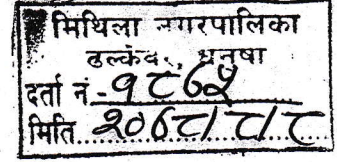 मिथिला नगरपालिका
ढल्केवर, धनुषा
दर्ता नं.-१८७५
मिति..२०७८/८/८